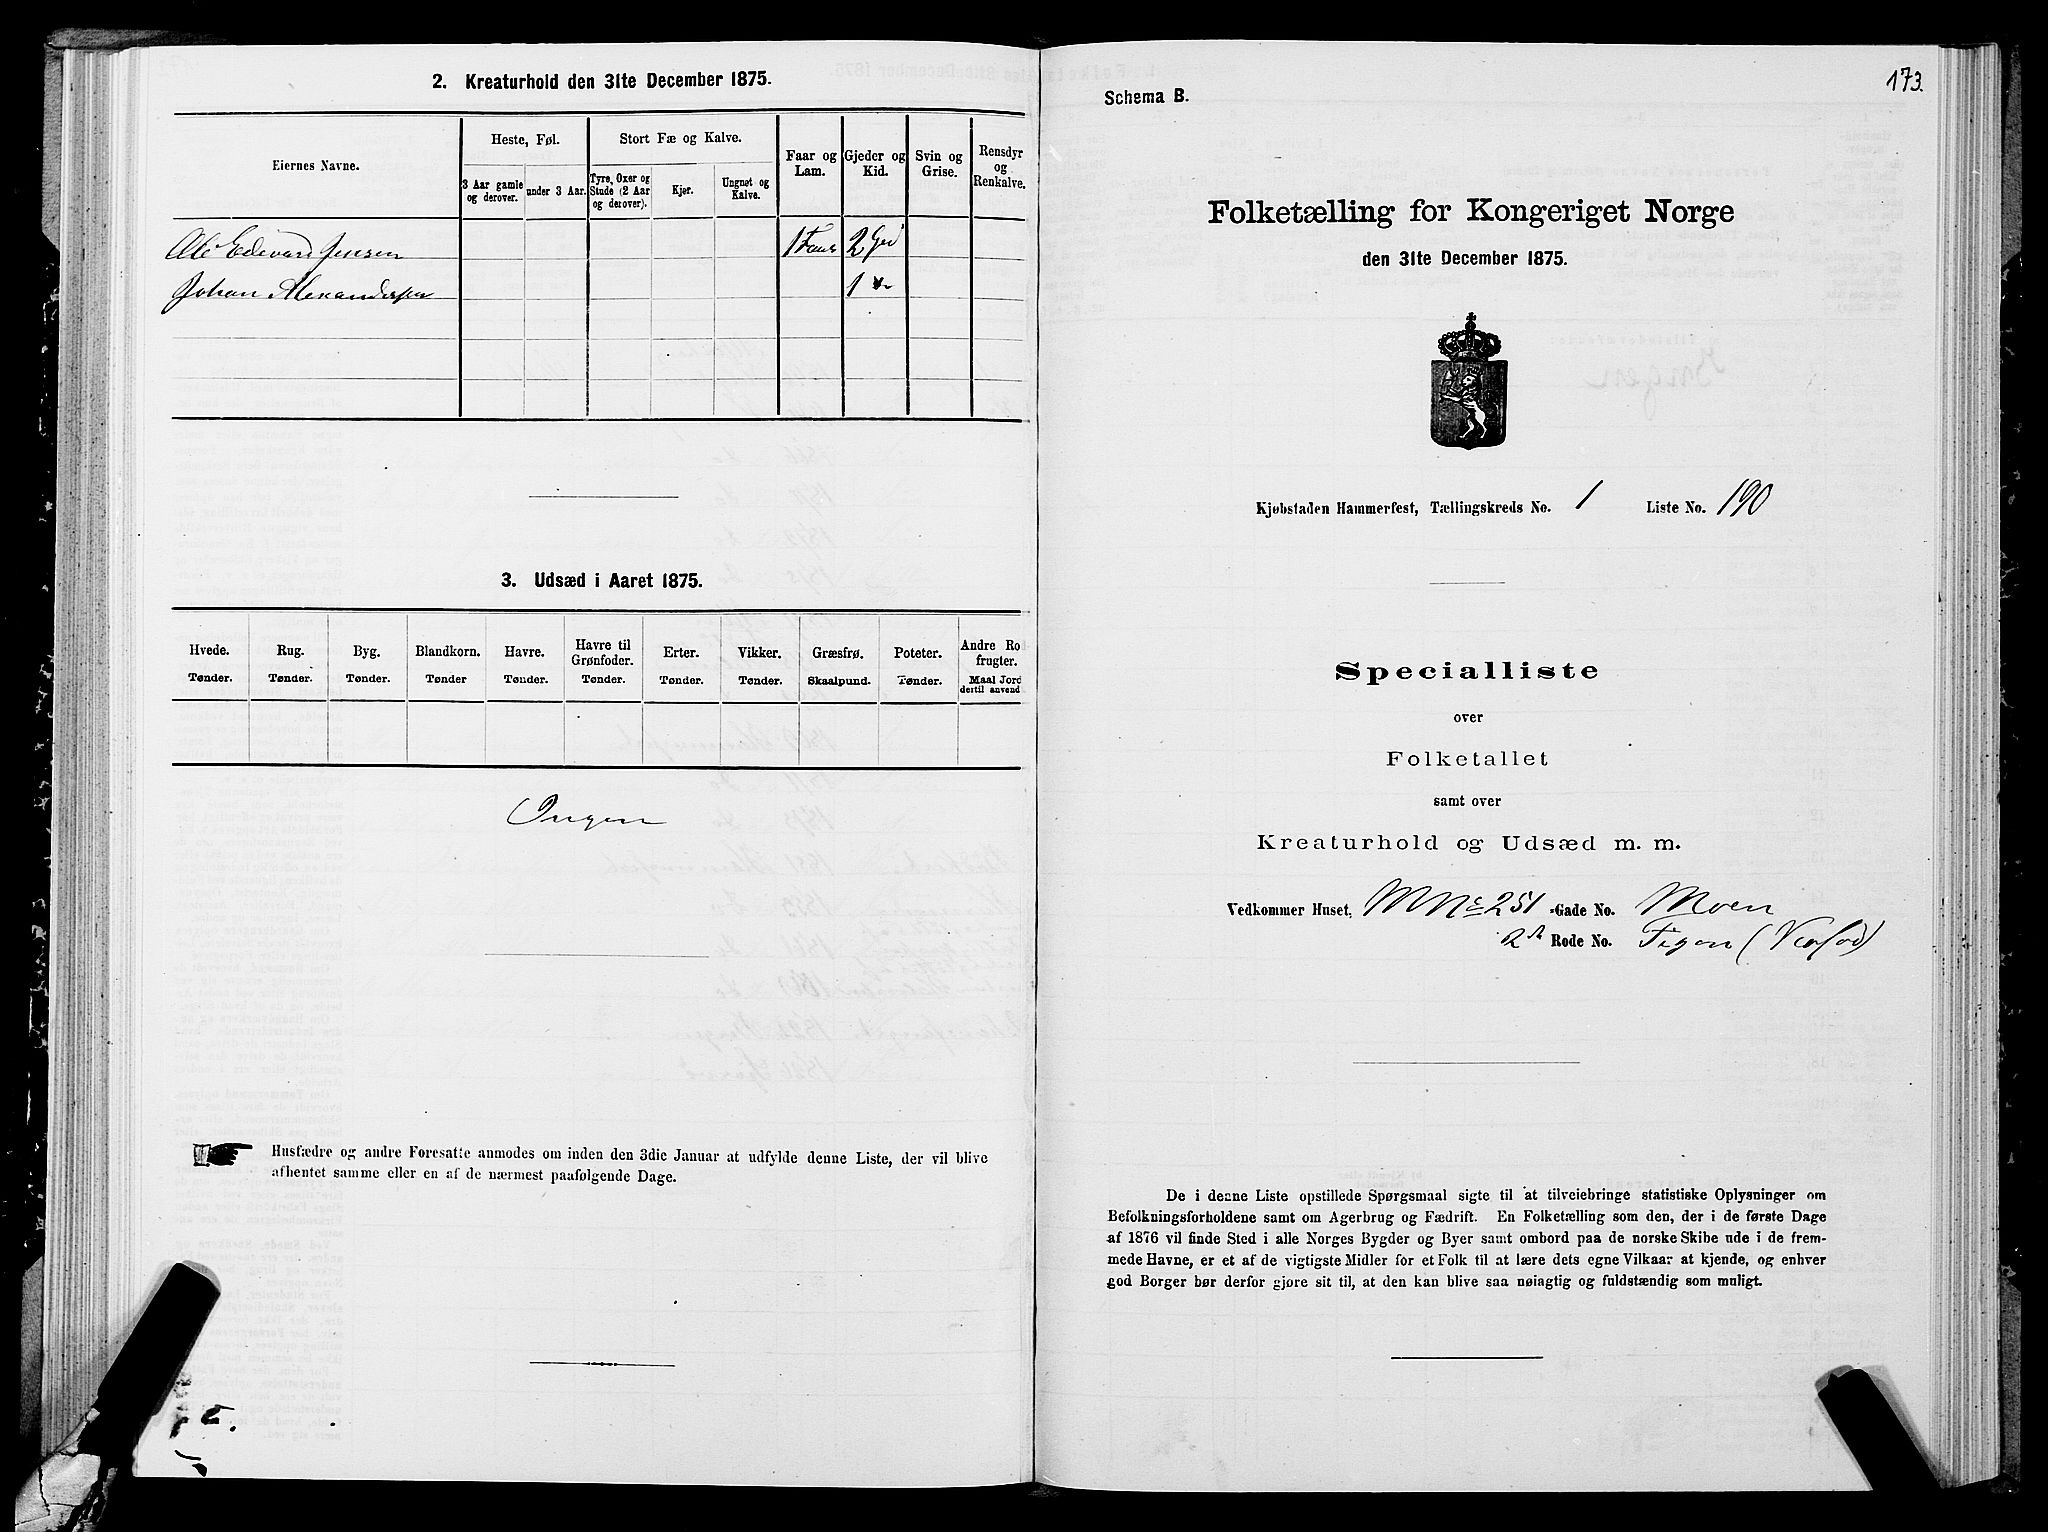 2. Kreaturhold den 31te December 1875.
Eiernes Navne.
Heste, Føl.
Stort Fæ og Kalve.
Faar og Lam.
Gjeder og Kid.
Svin og Grise.
Rensdyr og Renkalve.
3 Aar gamle og derover.
under 3 Aar.
Tyre, Oxer og Stude (2 Aar og derover).
Kjør.
Ungnøt og Kalve.
Ole Edevard Jensen 1 Faar 2 Ged
Johan Alexandersen 1
3. Udsæd i Aaret 1875.
Hvede. Rug. Byg. Blandkorn. Havre. Havre til Grønfoder. Erter. Vikker. Græsfrø. Poteter. Andre Rod frugter.
Tønder. Tønder. Tønder. Tønder Tønder. Tønder. Tønder. Tønder. Skaalpund. Tønder. Maal Jord dertil anvend
Ingen
Husfædre og andre Foresatte anmodes om inden den 3die Januar at udfylde denne Liste, der vil blive
afhentet samme eller en af de nærmest paafølgende Dage.
173.
Schema B.
Folketælling for Kongeriget Norge
den 31te December 1875.
Kjøbstaden Hammerfest, Tællingskreds No. 1 Liste No. 190
Specialliste
over
Folketallet
samt over
Kreaturhold og Udsæd m. m.
Vedkommer Huset, MNo 251 -Gade No. Moen
2de Rode No.
De i denne Liste opstillede Spørgsmaal sigte til at tilveiebringe statistiske Oplysninger om
Befolkningsforholdene samt om Agerbrug og Fædrift. En Folketælling som den, der i de første Dage
af 1876 vil finde Sted i alle Norges Bygder og Byer samt ombord paa de norske Skibe ude i de frem-
mede Havne, er et af de vigtigste Midler for et Folk til at lære dets egne Vilkaar at kjende, og enhver
god Borger bør derfor gjøre sit til, at den kan blive saa nøiagtig og fuldstændig som muligt.